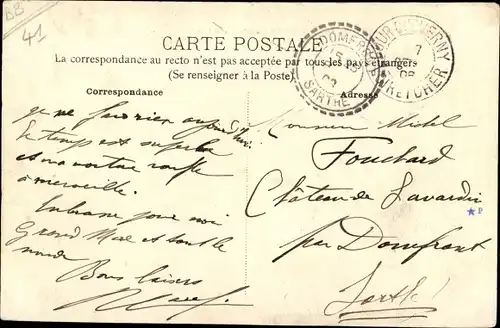 BB
41
CARTE POSTALE
La correspondance au recto n'est pas acceptée par tous les pays étrangers
(Se renseigner à la Poste)
Correspondance
Adresse
DOMFR
SARTHE
7
08
LOIR ET CHER
le temps est superbe
et ma voiture ronfle
à merveille.
Embrasse pour moi
Grand Mère et tout le
monde
Bons baisers
Monsieur Michel
Fouchard
Château de Lavardin
par Domfront
Sarthe